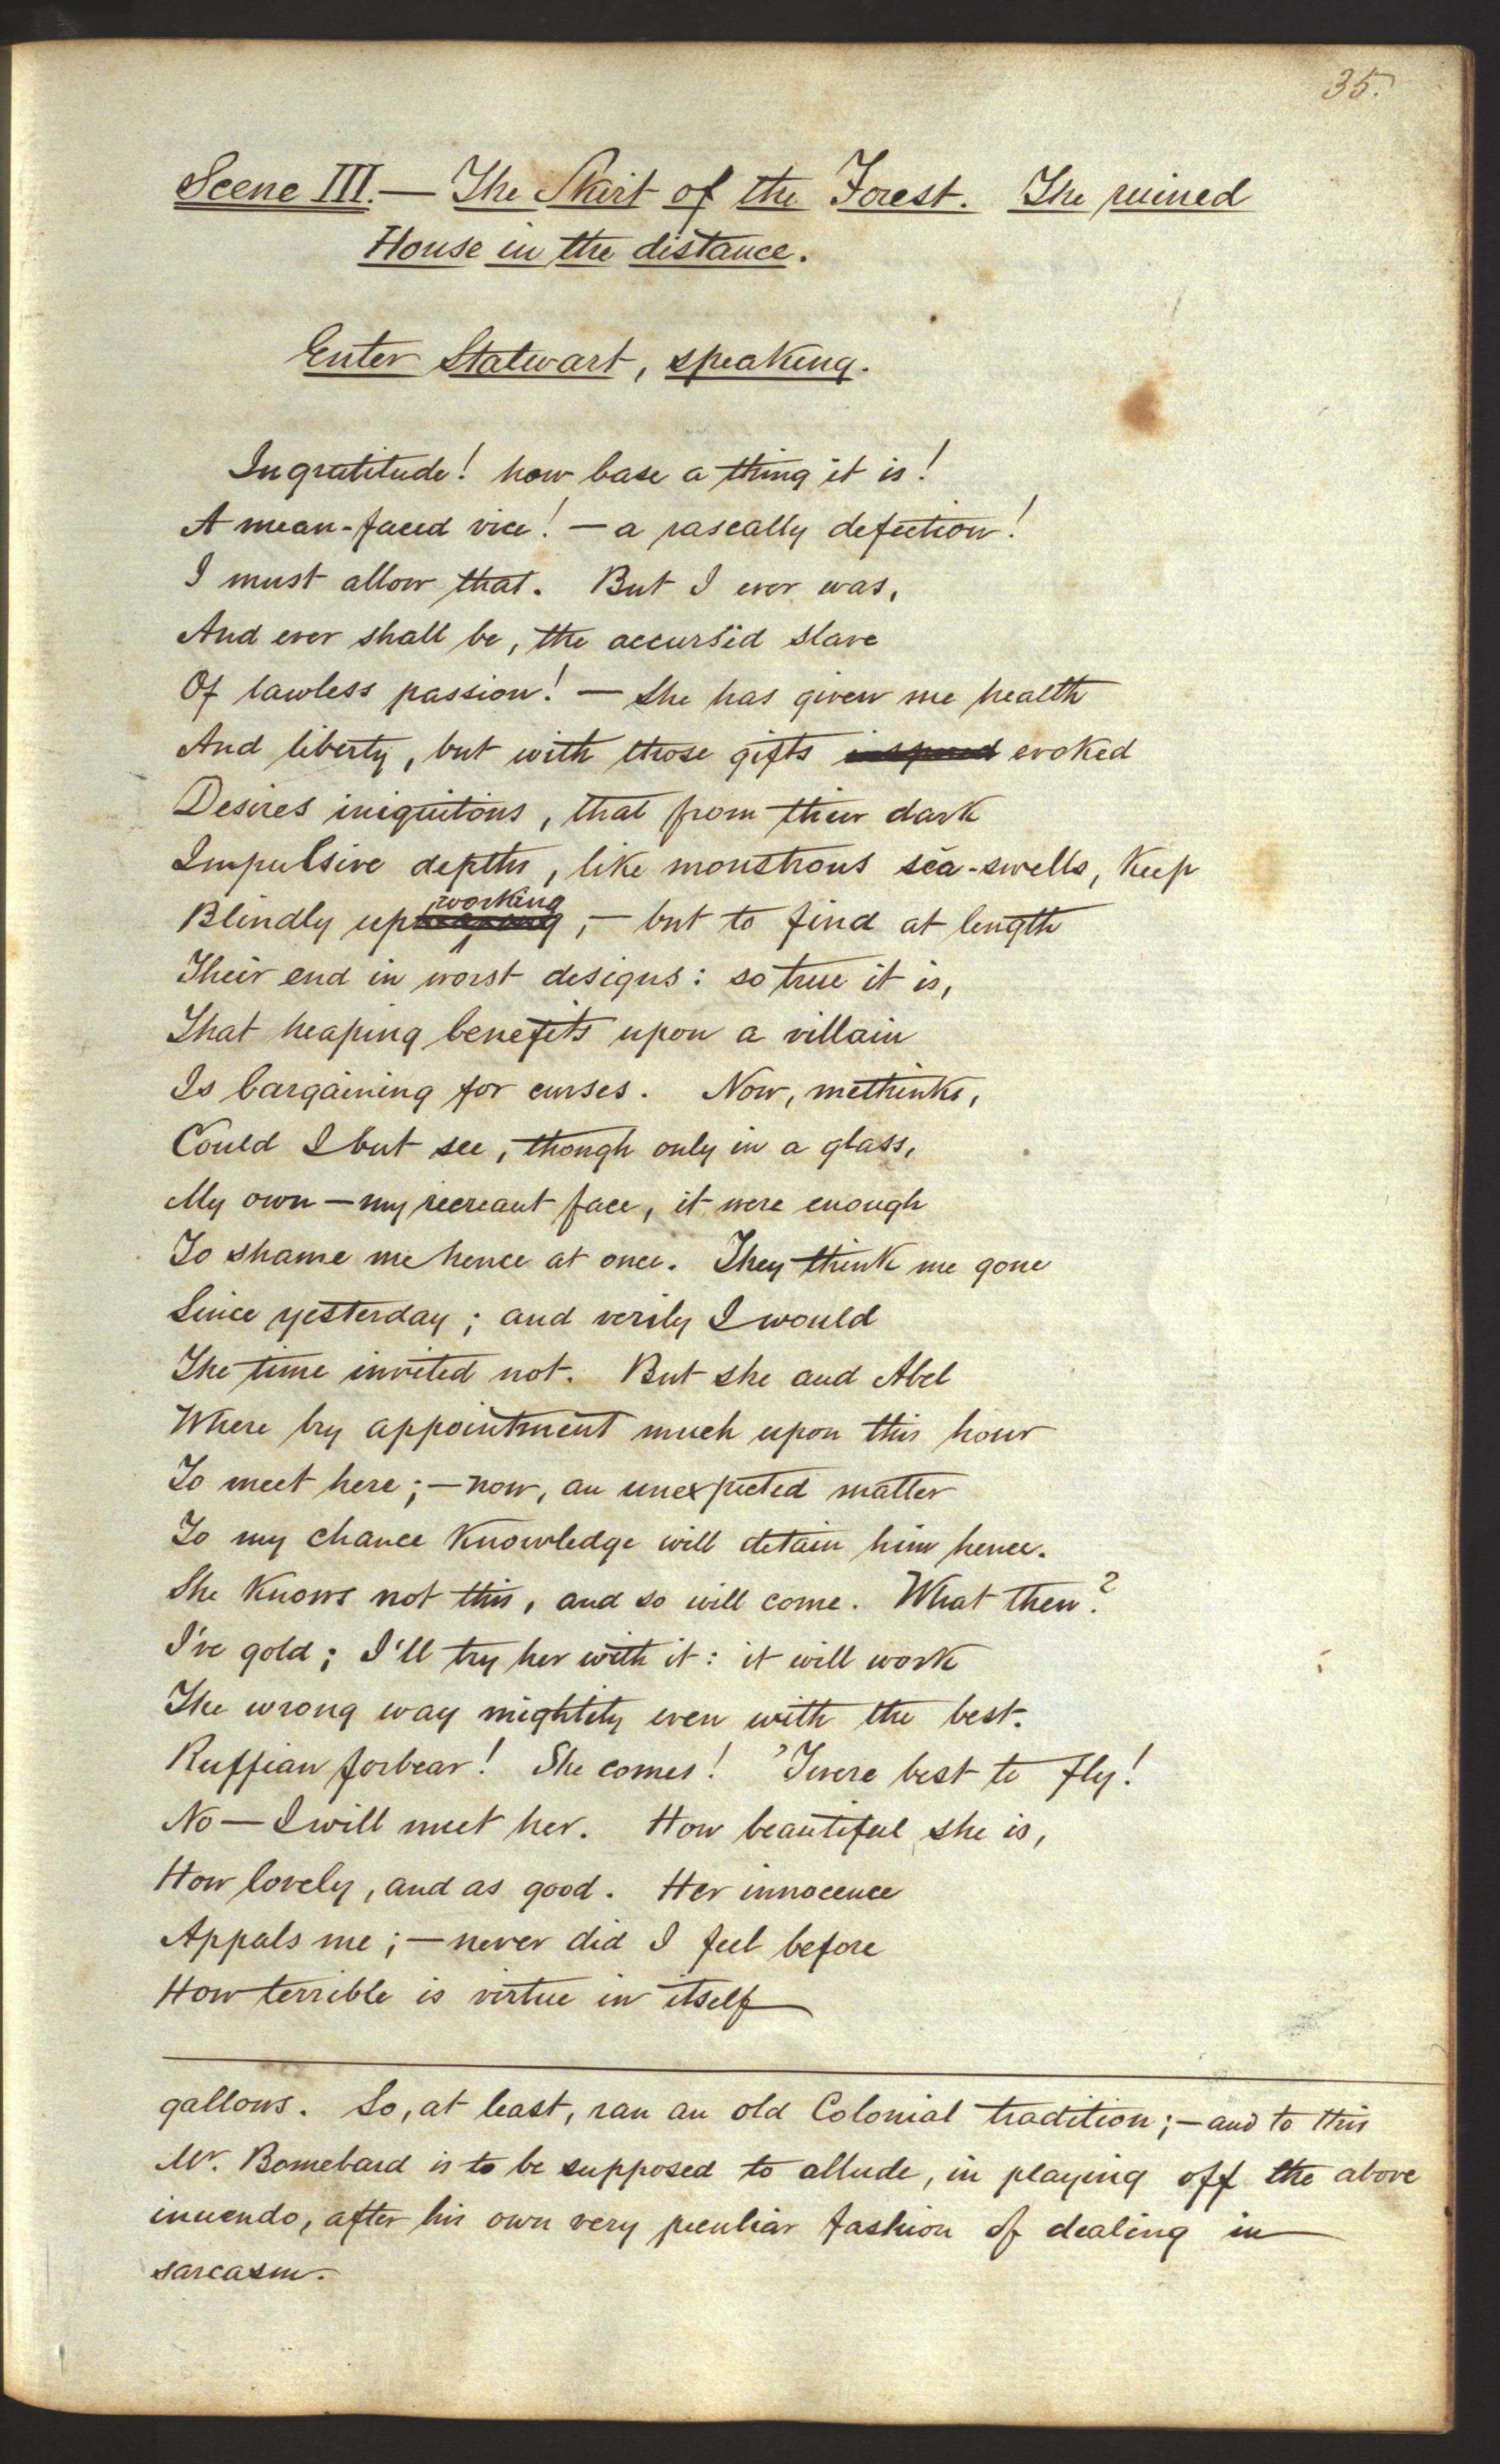 35.
Scene III.— The Skirt of the Forest. The ruined
House in the distance.
Enter Stalwart, speaking.
Ingratitude! how base a thing it is!
A mean-faced vice! — a rascally defection!
I must allow that. But I ever was,
And ever shall be, the accursëd slave
Of lawless passion! — She has given me health
And liberty, but with those gifts inspired evoked
Desires iniquitous, that from their dark
Impulsive depths, like monstrous sea-swells, keep
Blindly upworking, — but to find at length
Their end in worst designs: so true it is,
That heaping benefits upon a villain
Is bargaining for curses. Now, methinks,
Could I but see, though only in a glass,
My own — my recreant face, it were enough
To shame me hence at once. They think me gone
Since yesterday; and verily I would
The time invited not. But she and Abel
Where by appointment much upon this hour
To meet here; — now, an unexpected matter
To my chance knowledge will detain him hence.
She knows not this, and so will come. What then?
I've gold; I'll try her with it: it will work
The wrong way mightily even with the best.
Ruffian forbear! She comes! 'Twere best to fly!
No — I will meet her. How beautiful she is,
How lovely, and as good. Her innocence
Appals me; — never did I feel before
How terrible is virtue in itself
gallows. So, at least, ran an old Colonial tradition; — and to this
Mr. Bomebard is to be supposed to allude, in playing off the above
inuendo, after his own very peculiar fashion of dealing in
sarcasm.